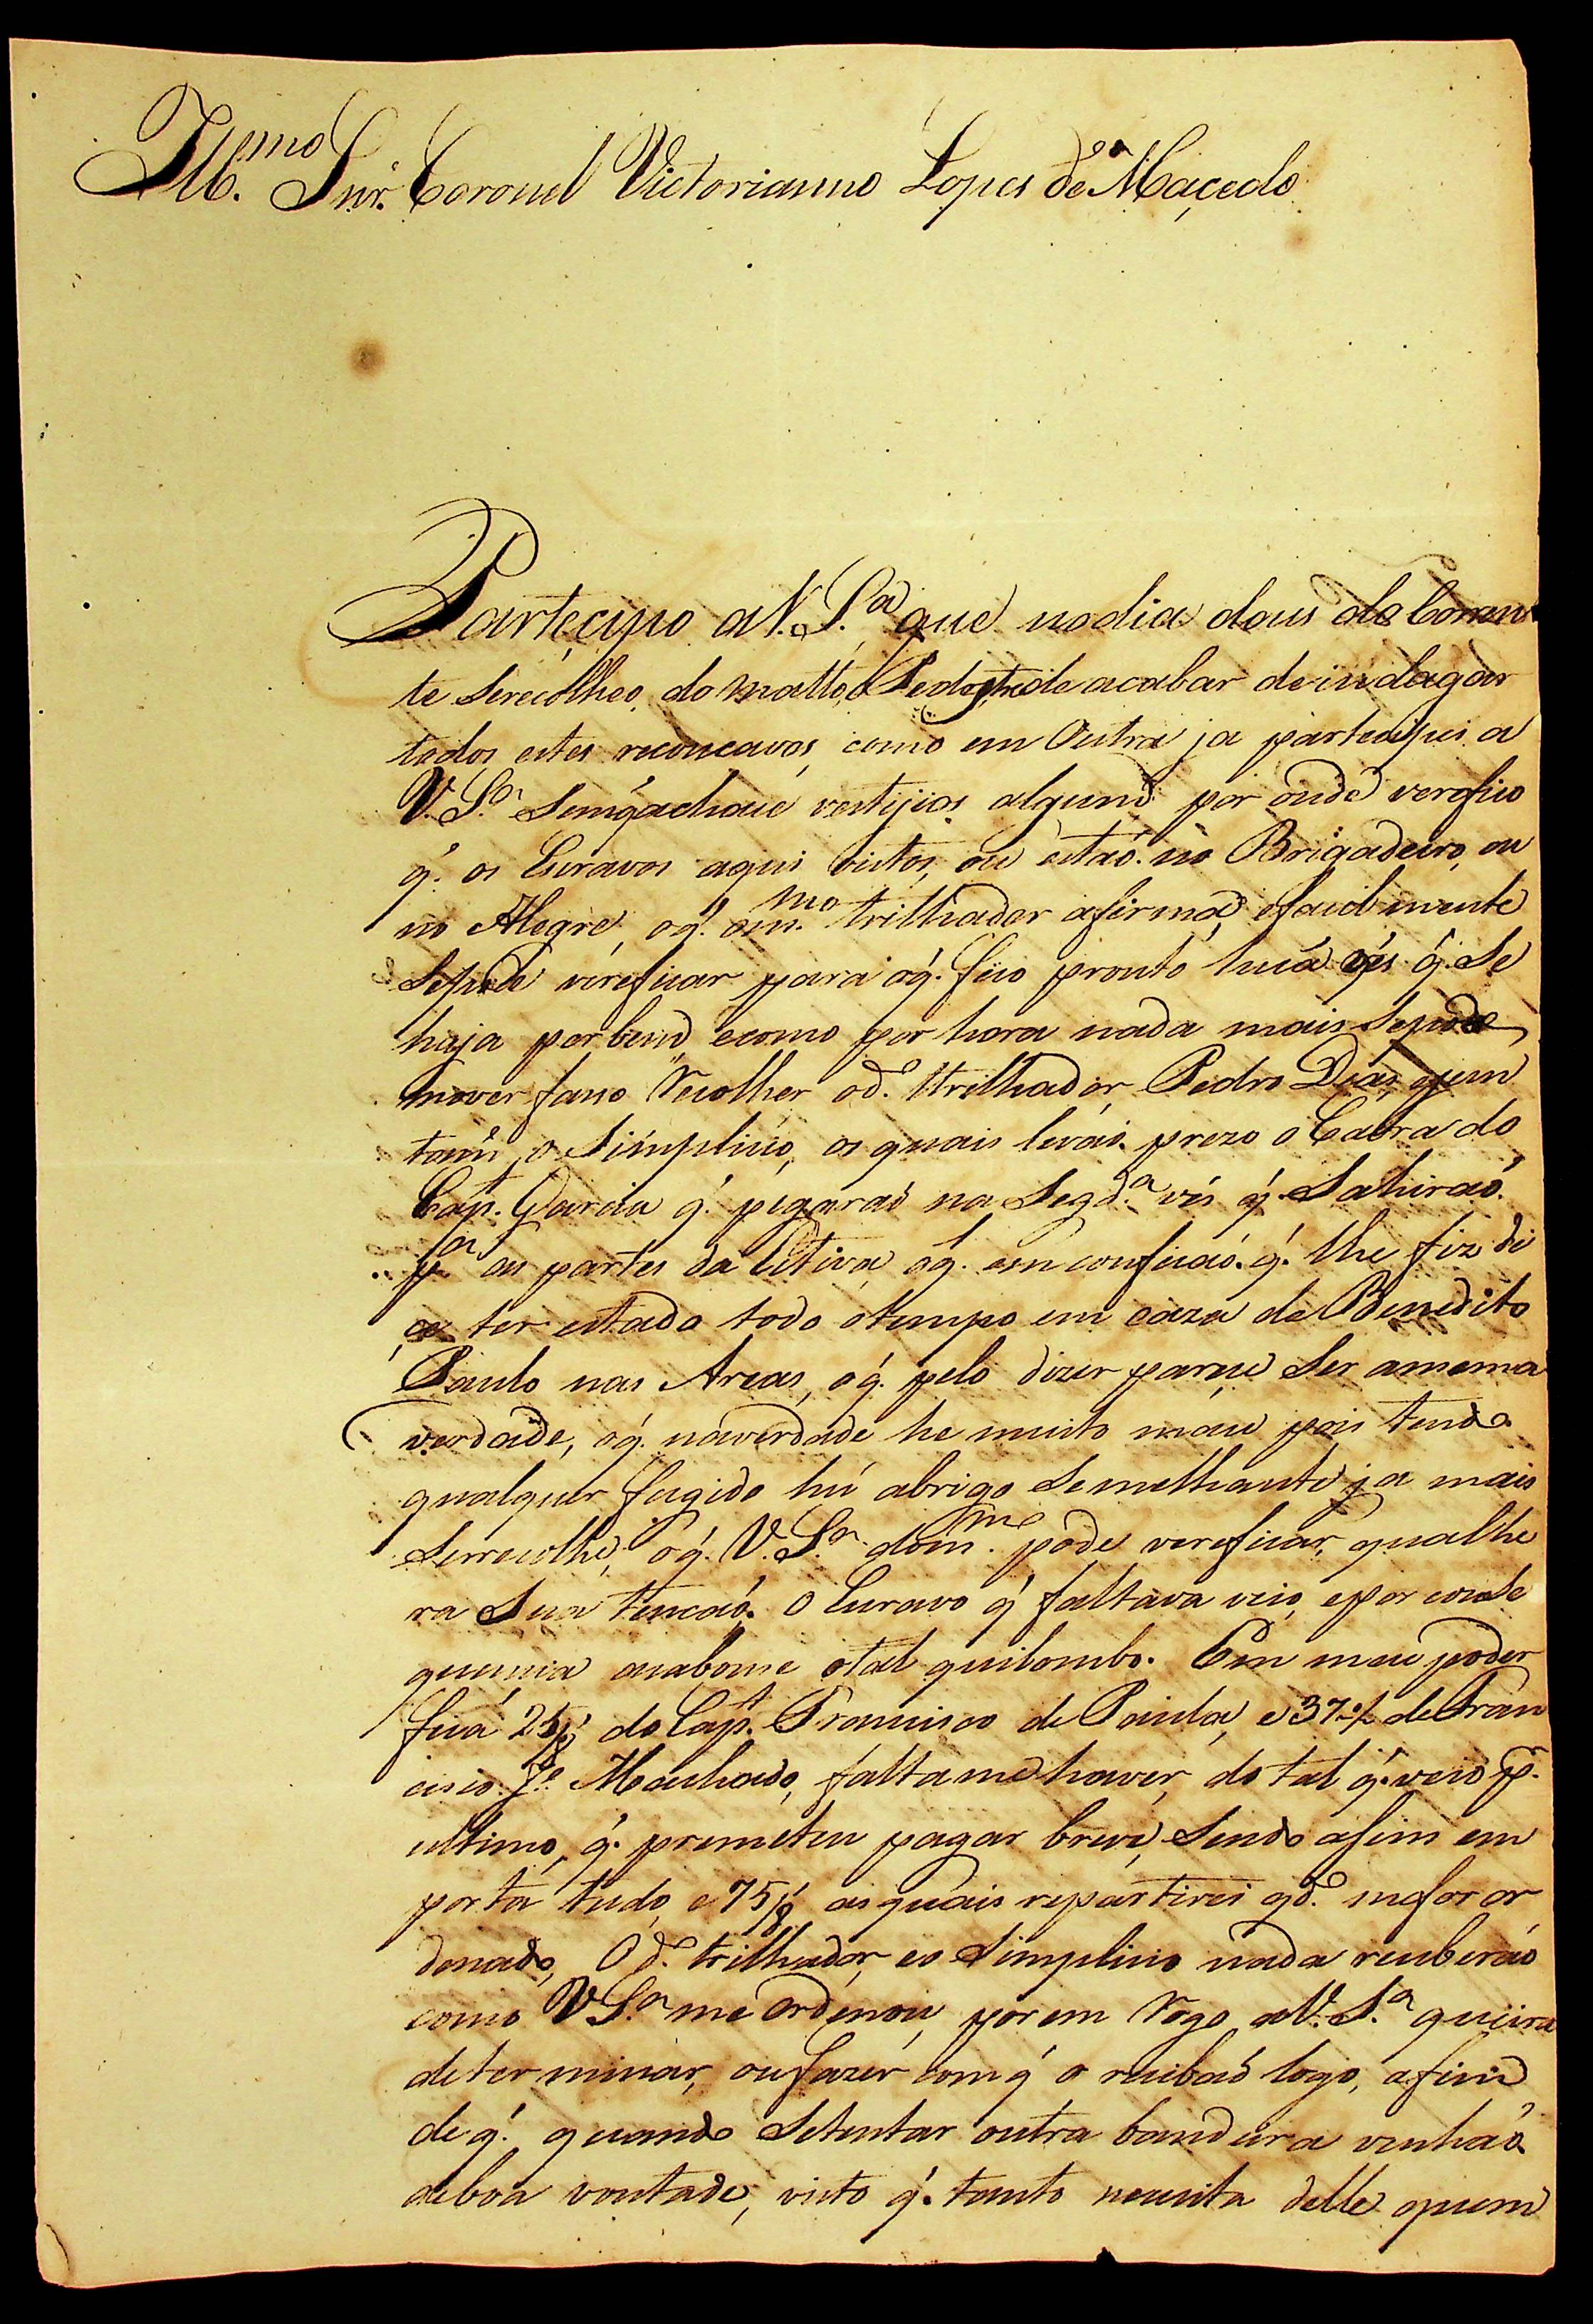 Ill.mo Snr. Coronel Victorianno Lopes de Macedo
Partecipo a V. S.a que no dia dous do Corren
te serecolheo do matto, o Pedestre de acabar de indagar
todos estes reconcavos, como em Outra ja partecipei a
V. S.a Sem q' achace vestijios algum por onde verefico
q'. os Escravos aqui vistos, ou estaõ. no Brigadeiro, ou
no Alegre, oq'. om.mo trilhador afirma, e facil mente
Sepode vereficar para oq'. fico pronto huá vês q'. Se
haja por bem, e como por hora nada mais Sepode
mover faso Recolher od.o trilhador Pedro Dias, ejun
tam.e o Simplicio, os quais levaõ. prezo o Cabra do
Cap.t Garcia q'. pegaraõ na Segd.a vês q'. Sahiraõ.
p.a as partes da Estiva, oq'. em conficaõ. q'. lhe fiz di
ce ter estado todo otempo em caza de Benedito
Paulo nas Areas, oq'. pelo dizer parece Ser amema
verdade, oq'. naverdade he muito mau pois tendo
qualquer fugido hú abrigo Semelhante ja mais
Serrecolhe, oq'. V. S.a dom.mo pode vereficar, qualhe
ra Sua tencaõ. O Escravo q' faltava veio, epor conse
quencia acabouse otal quilombo. Em meu poder
fica 25/8 do Cap.t Francisco de Paula, e 37 ½ de Fran
cisco J.e Machado, faltame haver, do tal q'. veio p.
ultimo, q'. premeteu pagar breve, Sendo asim em
porta tudo, e 75/8 as quais repartirei qd.o mefor or
denado, O d.o trilhador, eo Simplicio nada receberaõ
como V S.a me Ordenou, porem Rogo aV. S.a queira
deter minar, oufazer com q' o recibaõ logo, afim
de q'. quando Setentar outra bandeira venhaõ.
deboa vontade, visto q'. tanto necesita delle quem